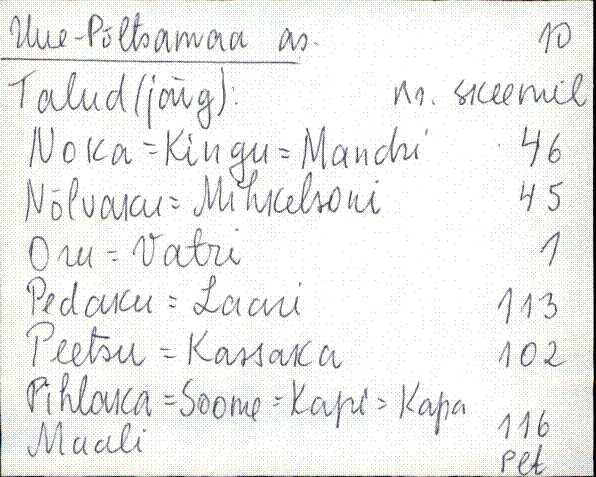 Uue-Põltsamaa as. 10
Talud (järg): nr. skeemil
Noka = Kingu = Mandri 46
Nõlvaku = Mihkelsoni 45
Oru = Vatri 1
Pedaku = Laari 113
Peetsu = Kassaka 102
Pihlaka = Soome = Kapi = Kapa
Maali 116
Plt